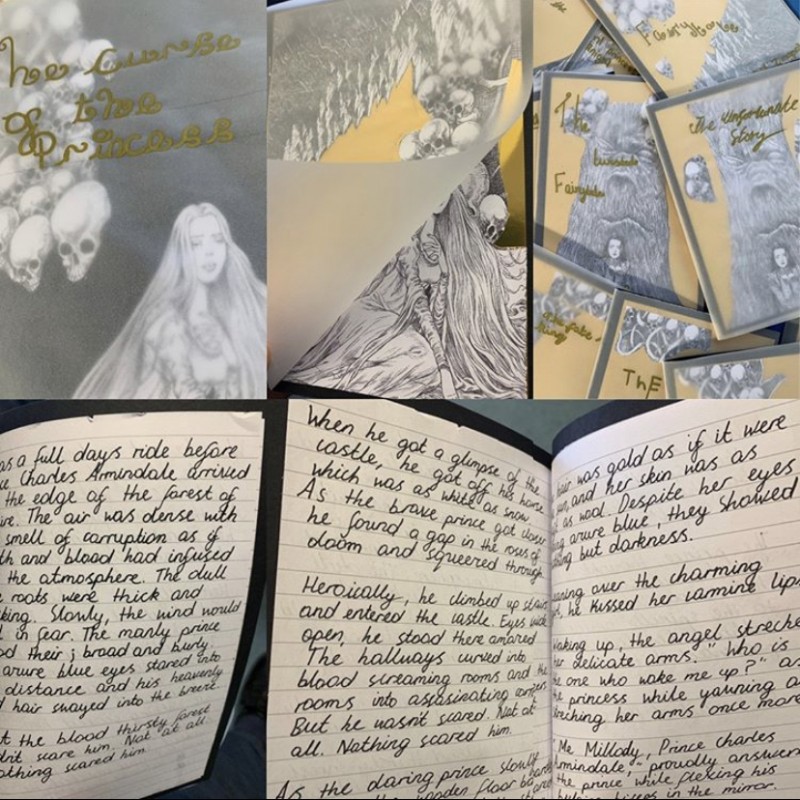 The Curse
of the
Princess
Fairytale
The
twisted
Fairytale
The Unfortunate
Story
The fake
King
The
as a full days ride before
Charles Armindale arrived
the edge of the forest of
The air was dense with
smell of corruption as if
and blood had infused
the atmosphere. The dull
roots were thick and
king. Slowly, the wind would
in fear. The manly prince
their j broad and burly.
azure blue eyes stared into
distance and his heavenly
hair swayed into the breeze.
the blood thirsty forest
scare him. Not at all.
nothing scared him.
When he got a glimpse of the
castle, he got off his horse
which was as white as snow.
As the brave prince got closer
he found a gap in the roses of
doom and squeezed through.
Heroically, he climbed up stairs
and entered the castle. Eyes wide
open, he stood there amazed
The hallways curved into
blood screaming rooms and the
rooms into assasinating corners.
But he wasn't scared. Not at
all. Nothing scared him.
As the daring prince slowly
wooden floor boards
hair was gold as if it were
and her skin was as
as wool. Despite her eyes
azure blue, they showed
but darkness.
over the charming
he kissed her varmine lips
waking up, the angel streched
her delicate arms. "Who is
the one who woke me up?" as
the princess while yawning a
streching her arms once more
Me Millody, Prince Charles
Armindale," proudly answere
the prince while flexing his
in the mirror.